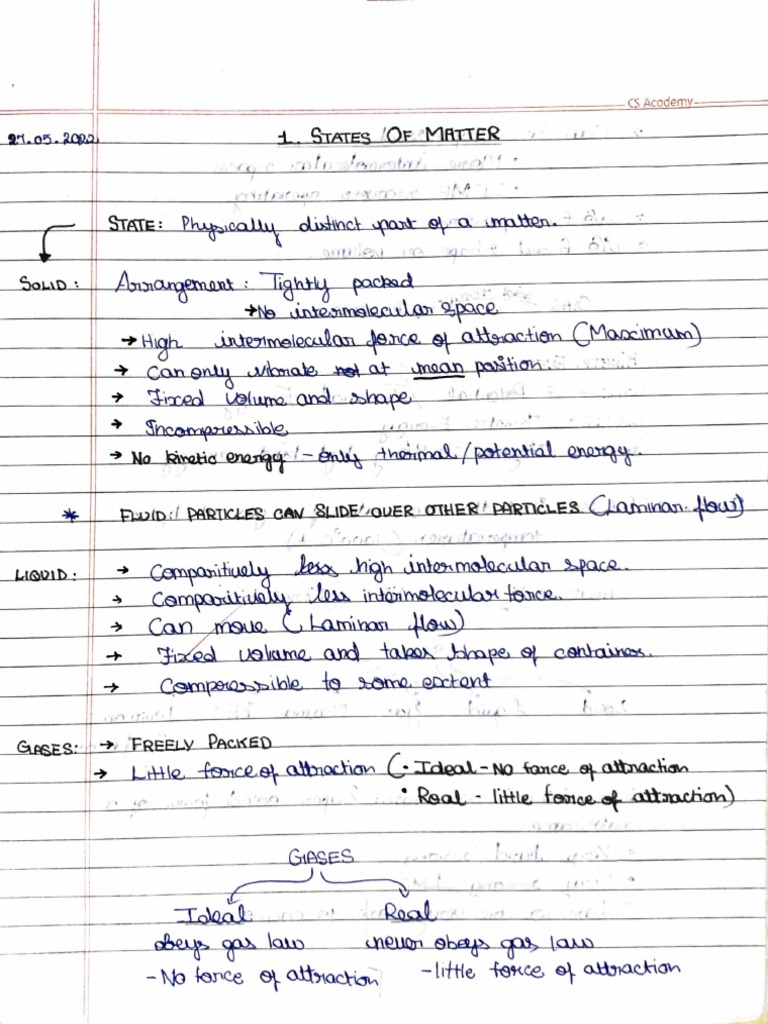 CS Academy
27.05.2022
1. STATES OF MATTER
STATE: Physically distinct part of a matter.
SOLID: Arrangement: Tightly packed
→ No intermolecular space
→ High intermolecular force of attraction (Maximum)
→ Can only vibrate not at mean position.
→ Fixed volume and shape
→ Incompressible
→ No kinetic energy - only thermal/potential energy.
* FLUID: PARTICLES CAN SLIDE OVER OTHER PARTICLES (Laminar flow)
LIQUID: → Comparitively less high intermolecular space.
→ Comparitively less intermolecular force.
→ Can move (Laminar flow)
→ Fixed volume and takes shape of container.
→ Compressible to some extent
GASES: → FREELY PACKED
→ Little force of attraction (• Ideal - No force of attraction
• Real - little force of attraction)
GASES
Ideal Real
obeys gas law never obeys gas law
- No force of attraction - little force of attraction